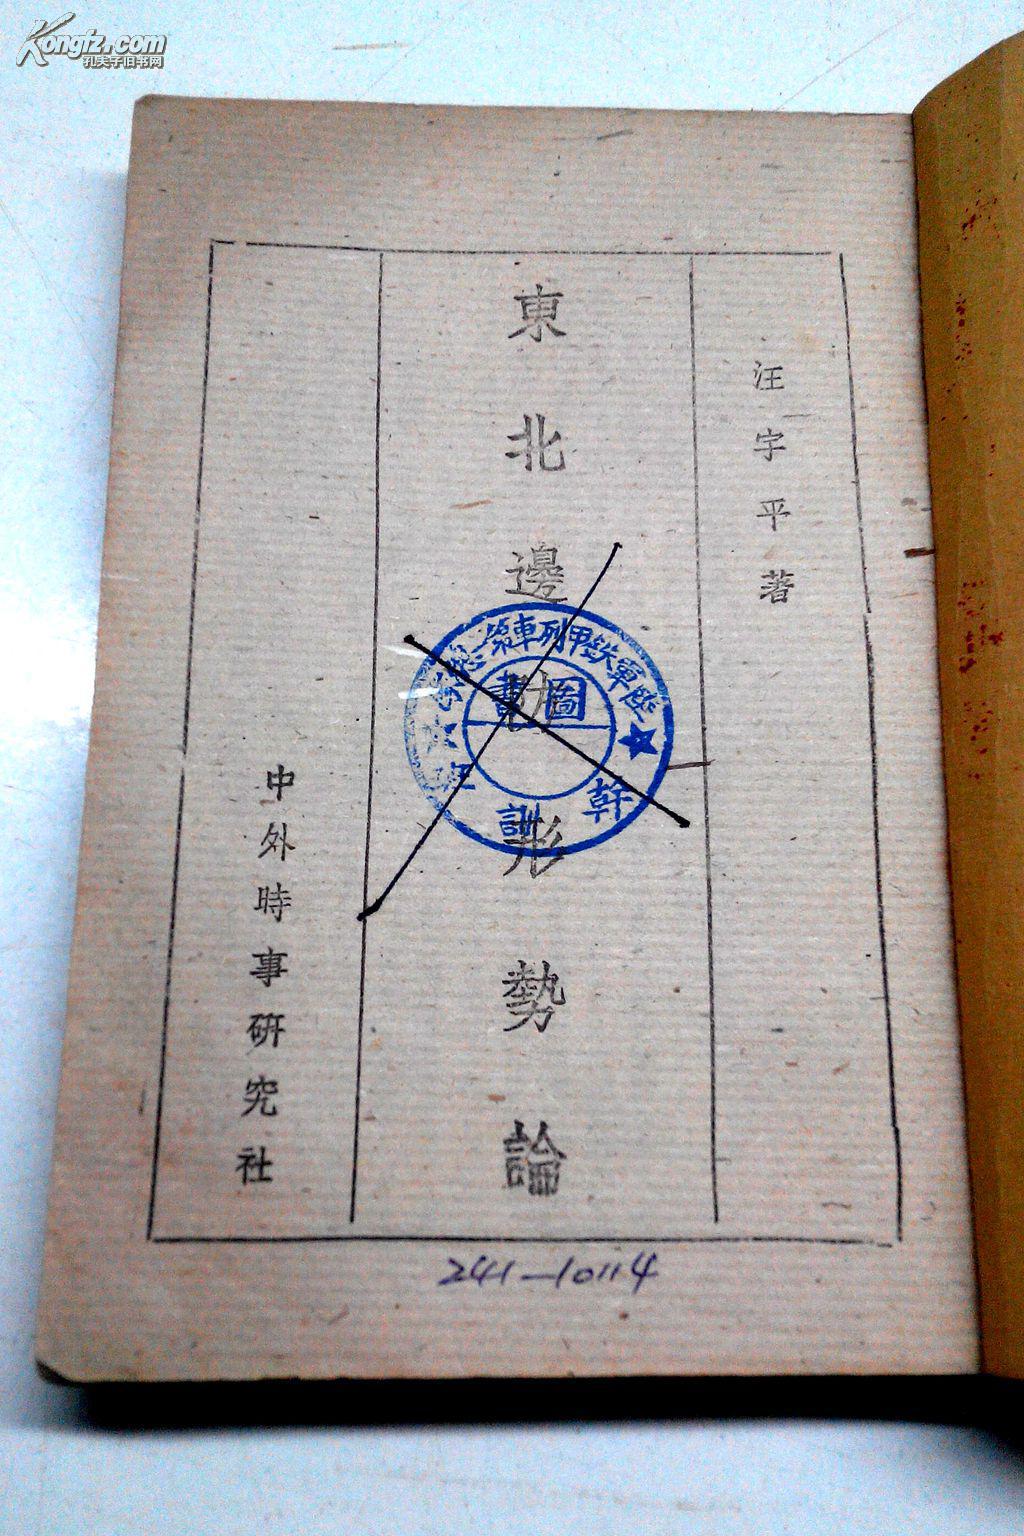 Kongfz.com
孔夫子旧书网
汪宇平著
東北邊防形勢論
中外時事研究社
圖書
幹訓
241-10114